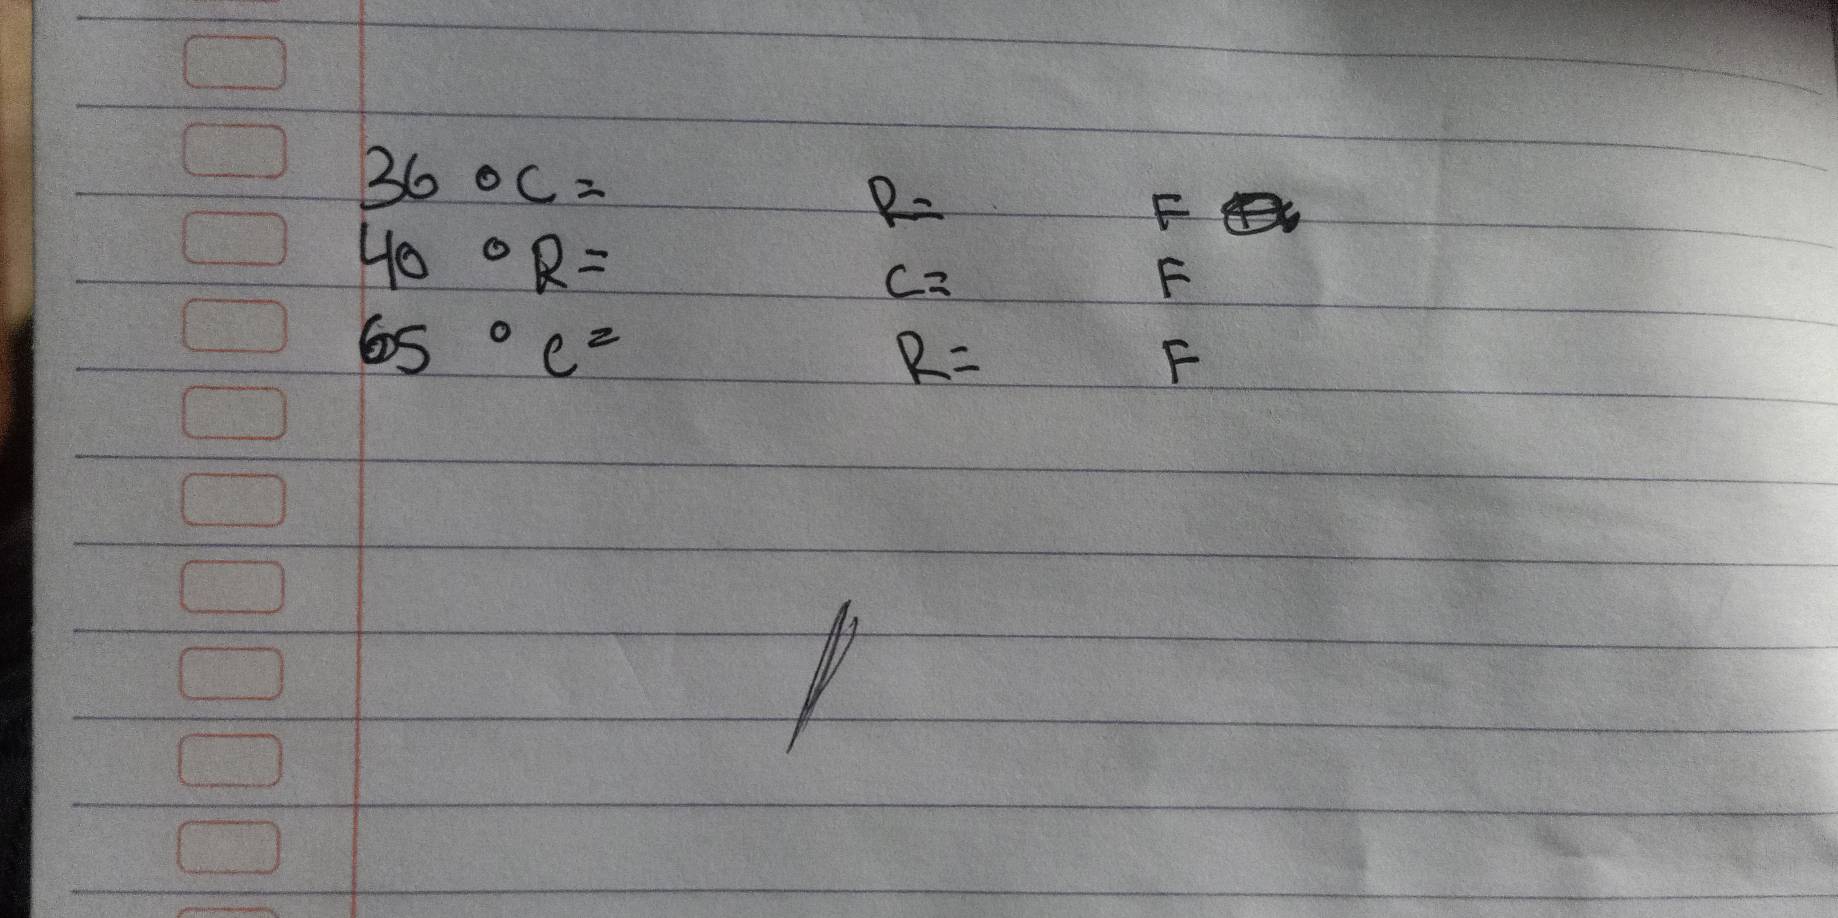 36 °C = R = F
40 °R = C = F
65 °C = R = F